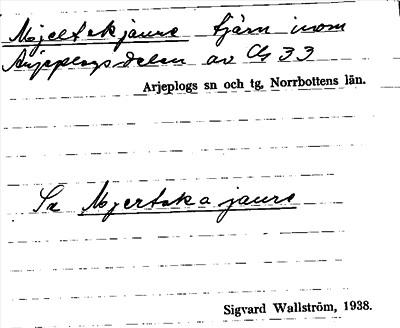 Mjeltskjaure tjärn inom
Arjeplogsdelen av Cs 33
Arjeplogs sn och tg, Norrbottens län.
Se Mjertskajaure
Sigvard Wallström, 1938.